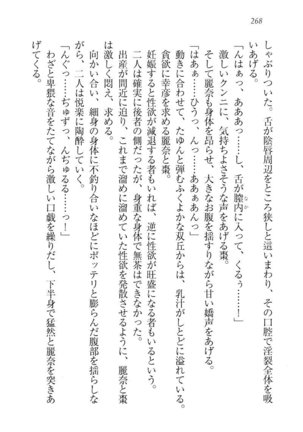 268
しゃぶりついた。舌が陰唇周辺をところ狭しと這いまわり、その口腔で淫裂全体を吸
いあげる。
「んはぁっ、あああっ……し、舌が膣内に入って、くるぅ……！」
激しいクンニに、気持ちよさそうな声をあげる棗。
そして麗奈も身体を昂らせ、大きなお腹を揺すりながら甘い嬌声をあげる。
「はあぁ……ひうっ、んっ……ああぁあんっ」
動きに合わせて、たゆんと弾むふくよかな双丘からは、乳汁が溢れている。
貪欲に幸彦を求める麗奈と棗。
妊娠すると性欲が減退する者もいれば、逆に性欲が旺盛になる者もいるという。
二人は確実に後者の側だったが、身重な身体で無茶はできない。
出産が間近に迫り、これまで溜めに溜めていた性欲を発散させるように、麗奈と棗
は激しく悶え、求める。
向かい合い、細身の身体に不釣り合いなほどにポッテリと膨らんだ腹部を揺らしな
がら、二人は悦楽に陶酔していく。
「んぐっ……ぢゅずっ、んぢゅるる……っ！」
わざと卑猥な音をたてながら激しい口戯を繰りだし、下半身で猛然と麗奈を突きあ
げてくる。